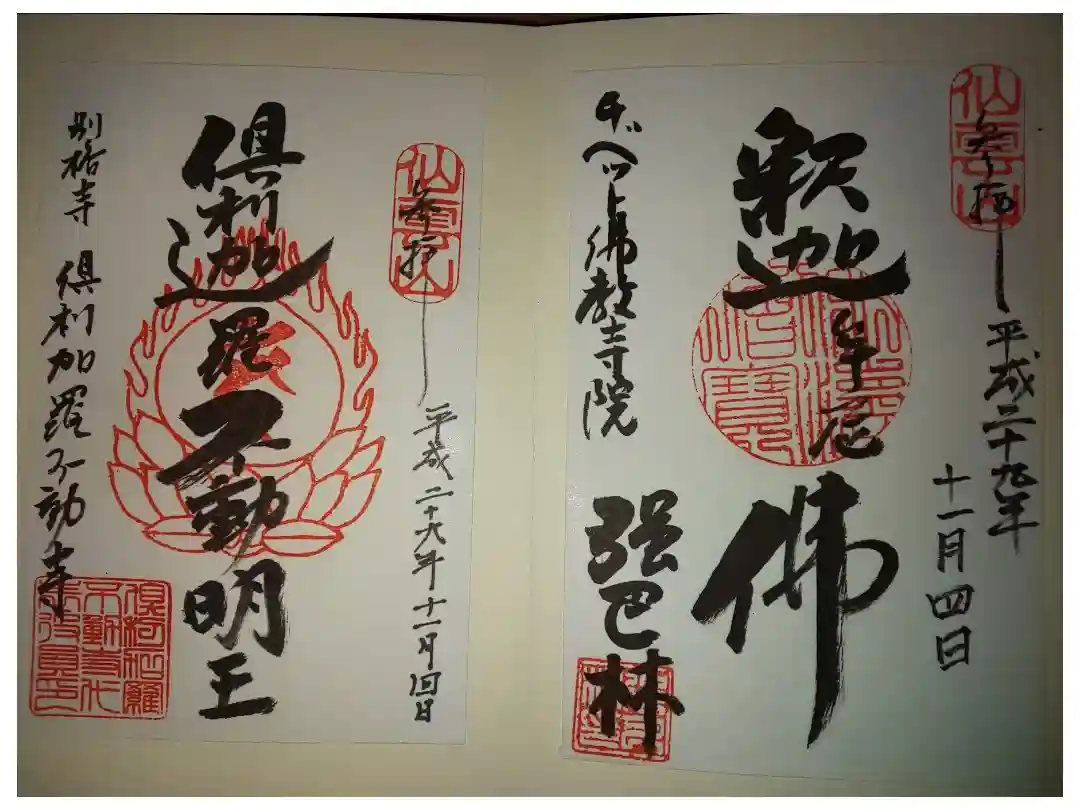 仙雲山
参拝
平成二十九年
十一月四日
釈迦牟尼
佛
チベット佛教寺院
强巴林
仙雲山
参拝
平成二十九年十一月四日
倶利迦羅不動明王
別格寺 倶利加羅不動寺